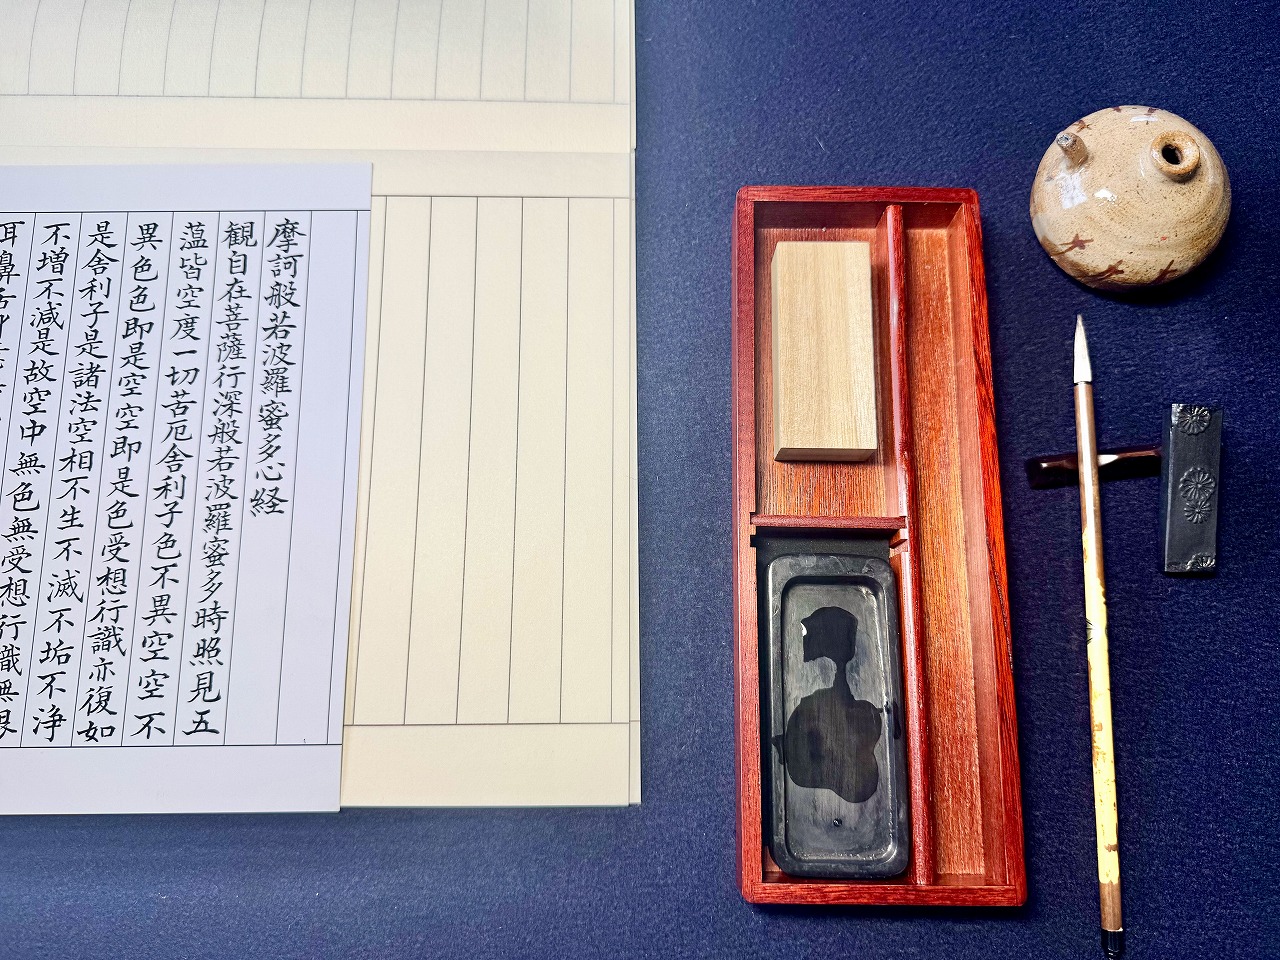 摩訶般若波羅蜜多心経
観自在菩薩行深般若波羅蜜多時照見五
薀皆空度一切苦厄舎利子色不異空空不
異色色即是空空即是色受想行識亦復如
是舎利子是諸法空相不生不滅不垢不浄
不増不減是故空中無色無受想行識無眼
耳鼻舌